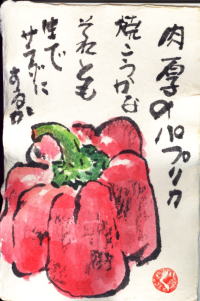 肉厚のパプリカ
焼こうかな
それとも
生で
サラダに
するか